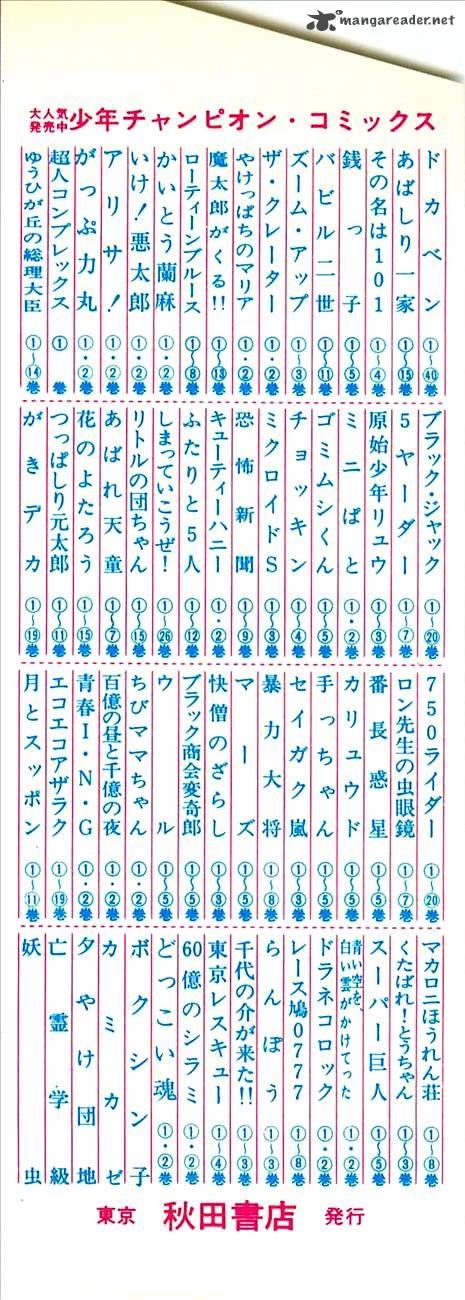 mangareader.net
大人気発売中 少年チャンピオン・コミックス
ドカベン ①〜㊵巻
あばしり一家 ①〜⑮巻
その名は101 ①〜④巻
銭っ子 ①〜⑤巻
バビル二世 ①〜⑪巻
ズーム・アップ ①〜③巻
ザ・クレーター ①・②巻
やけっぱちのマリア ①・②巻
魔太郎がくる!! ①〜⑬巻
ローティーンブルース ①〜⑧巻
かいとう蘭麻 ①・②巻
いけ!悪太郎 ①・②巻
アリサ! ①・②巻
がっぷ力丸 ①・②巻
超人コンプレックス ① 巻
ゆうひが丘の総理大臣 ①〜⑭巻
ブラック・ジャック ①〜⑳巻
5ヤーダー ①〜⑦巻
原始少年リュウ ①〜③巻
ミニぱと ①・②巻
ゴミムシくん ①〜⑤巻
チョッキン ①〜④巻
ミクロイドS ①〜③巻
恐怖新聞 ①〜⑨巻
キューティーハニー ①・②巻
ふたりと5人 ①〜⑫巻
しまっていこうぜ! ①〜㉖巻
リトルの団ちゃん ①〜⑮巻
あばれ天童 ①〜⑦巻
花のよたろう ①〜⑮巻
つっぱしり元太郎 ①〜⑪巻
がきデカ ①〜⑲巻
750ライダー ①〜⑳巻
ロン先生の虫眼鏡 ①〜⑦巻
番長惑星 ①〜⑤巻
カリュウド ①〜⑤巻
手っちゃん ①〜⑤巻
セイガク嵐 ①〜③巻
暴力大将 ①〜⑧巻
マーズ ①〜⑤巻
快僧のざらし ①〜③巻
ブラック商会変奇郎 ①〜⑤巻
ウル ①〜⑤巻
ちびママちゃん ①〜⑤巻
百億の昼と千億の夜 ①・②巻
青春I・N・G ①・②巻
エコエコアザラク ①〜⑲巻
月とスッポン ①〜⑪巻
マカロニほうれん荘 ①〜⑧巻
くたばれ!とうちゃん ①〜③巻
スーパー巨人 ①〜⑤巻
青い空を、白い雲がかけてった ①・②巻
ドラネコロック ①・②巻
レース鳩0777 ①〜⑧巻
らんぽう ①〜③巻
千代の介が来た!! ①〜③巻
東京レスキュー ①〜④巻
60億のシラミ ①・②巻
どっこい魂 ①・②巻
ボクシン子
カミカゼ
夕やけ団地
亡霊学級
妖虫
東京 秋田書店 発行